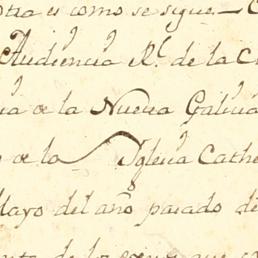 otra es como se sigue — C
Audiencia Rl. de la C
ia de la Nueva Galicia
de la Yglesia Cathe
Mayo del año pasado de
to de los